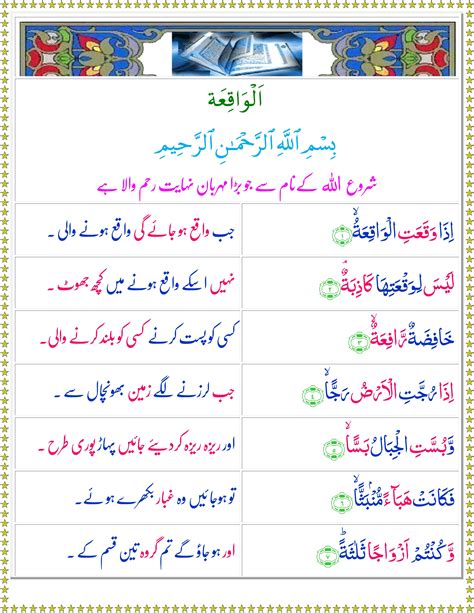 اَلْوَاقِعَة
بِسْمِ اللّٰهِ الرَّحْمٰنِ الرَّحِيْمِ
شروع اللہ کے نام سے جو بڑا مہربان نہایت رحم والا ہے
اِذَا وَقَعَتِ الْوَاقِعَةُۙ ۝۱ جب واقع ہو جائے گی واقع ہونے والی ۔
لَيْسَ لِوَقْعَتِهَا كَاذِبَةٌۘ ۝۲ نہیں اسکے واقع ہونے میں کچھ جھوٹ ۔
خَافِضَةٌ رَّافِعَةٌۙ ۝۳ کسی کو پست کرنے کسی کو بلند کرنے والی۔
اِذَا رُجَّتِ الْاَرْضُ رَجًّاۙ ۝۴ جب لرزنے لگے زمین بھونچال سے ۔
وَّبُسَّتِ الْجِبَالُ بَسًّاۙ ۝۵ اور ریزہ ریزہ کر دیئے جائیں پہاڑ پوری طرح ۔
فَكَانَتْ هَبَآءً مُّنْۢبَثًّاۙ ۝۶ تو ہو جائیں وہ غبار بکھرے ہوئے۔
وَّكُنْتُمْ اَزْوَاجًا ثَلٰثَةًؕ ۝۷ اور ہو جاؤ گے تم گروہ تین قسم کے ۔